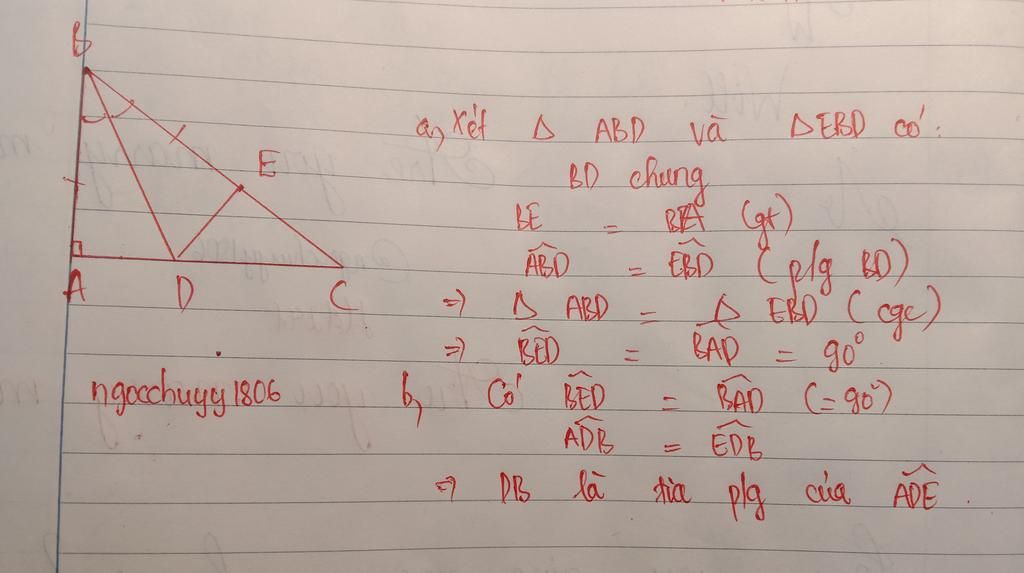 B
E
A
D
C
ngocchuyy1806
a, Xét Δ ABD và ΔEBD có:
BD chung
BE = BA (gt)
ABD̂ = EBD̂ (p/g BD)
=> Δ ABD = Δ EBD (cgc)
=> BED̂ = BAD̂ = 90°
b, Có BED̂ = BAD̂ (=90°)
ADB̂ = EDB̂
=> DB là tia p/g của ADÊ.